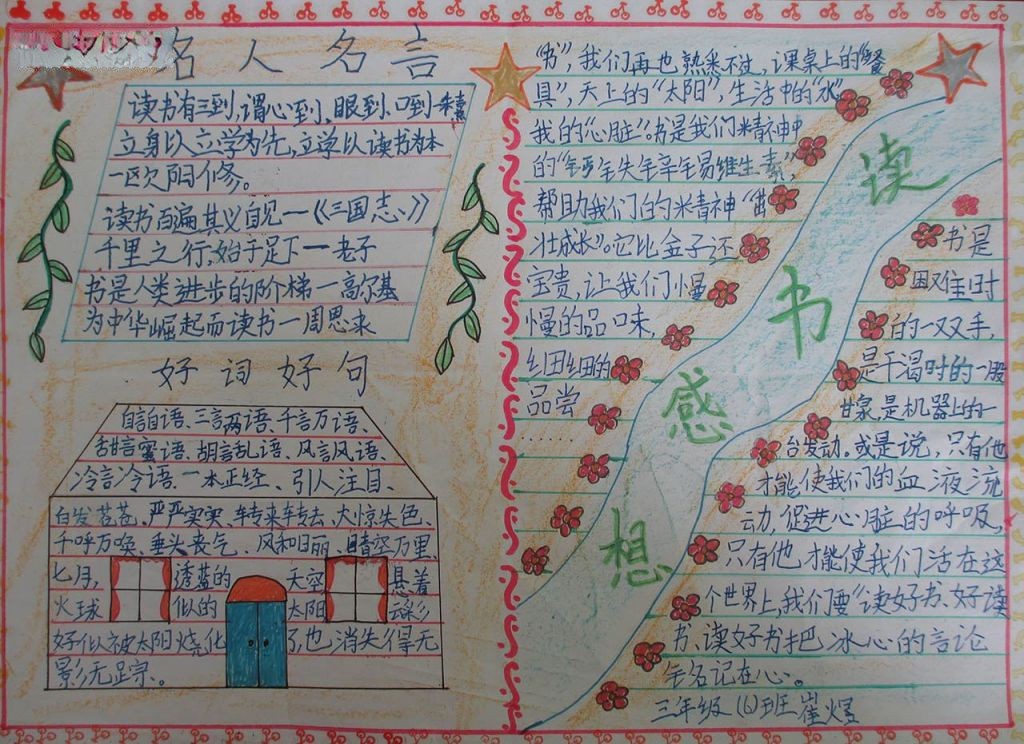 名人名言
读书有三到,谓心到、眼到、口到一朱熹
立身以立学为先,立学以读书为本
一区欠阳修。
读书百遍其义自见一《三国志、》
千里之行,始于足下一老子
书是人类进步的阶梯一高尔基
为中华崛起而读书一周恩来
好词好句
自言自语、三言两语、千言万语、
甜言蜜语、胡言乱语、风言风语、
冷言冷语、一本正经、引人注目、
白发苍苍、严严实实、转来转去、大惊失色、
千呼万唤、垂头丧气、风和日丽、晴空万里、
七月,透蓝的天空悬着
火球似的太阳
好似被太阳烧化了,也消失得无
影无踪。
读书感想
“书”,我们再也熟悉不过,课桌上的“餐
具”,天上的“太阳”,生活中的“水”
我的“心脏”。书是我们精神中
帮助我们的精神“茁
壮成长”。它比金子还
宝贵,让我们慢
慢的品味,
细细的
品尝
............
书是
困难时
的一双手,
是干渴时的一股
甘泉,是机器上的一
台发动。或是说,只有他
才能使我们的血液流
动,促进心脏的呼吸,
只有他才能使我们活在这
个世界上,我们要“读好书、好读
书、读好书把冰心的言论
牢名记在心。
三年级(6)班崔熠